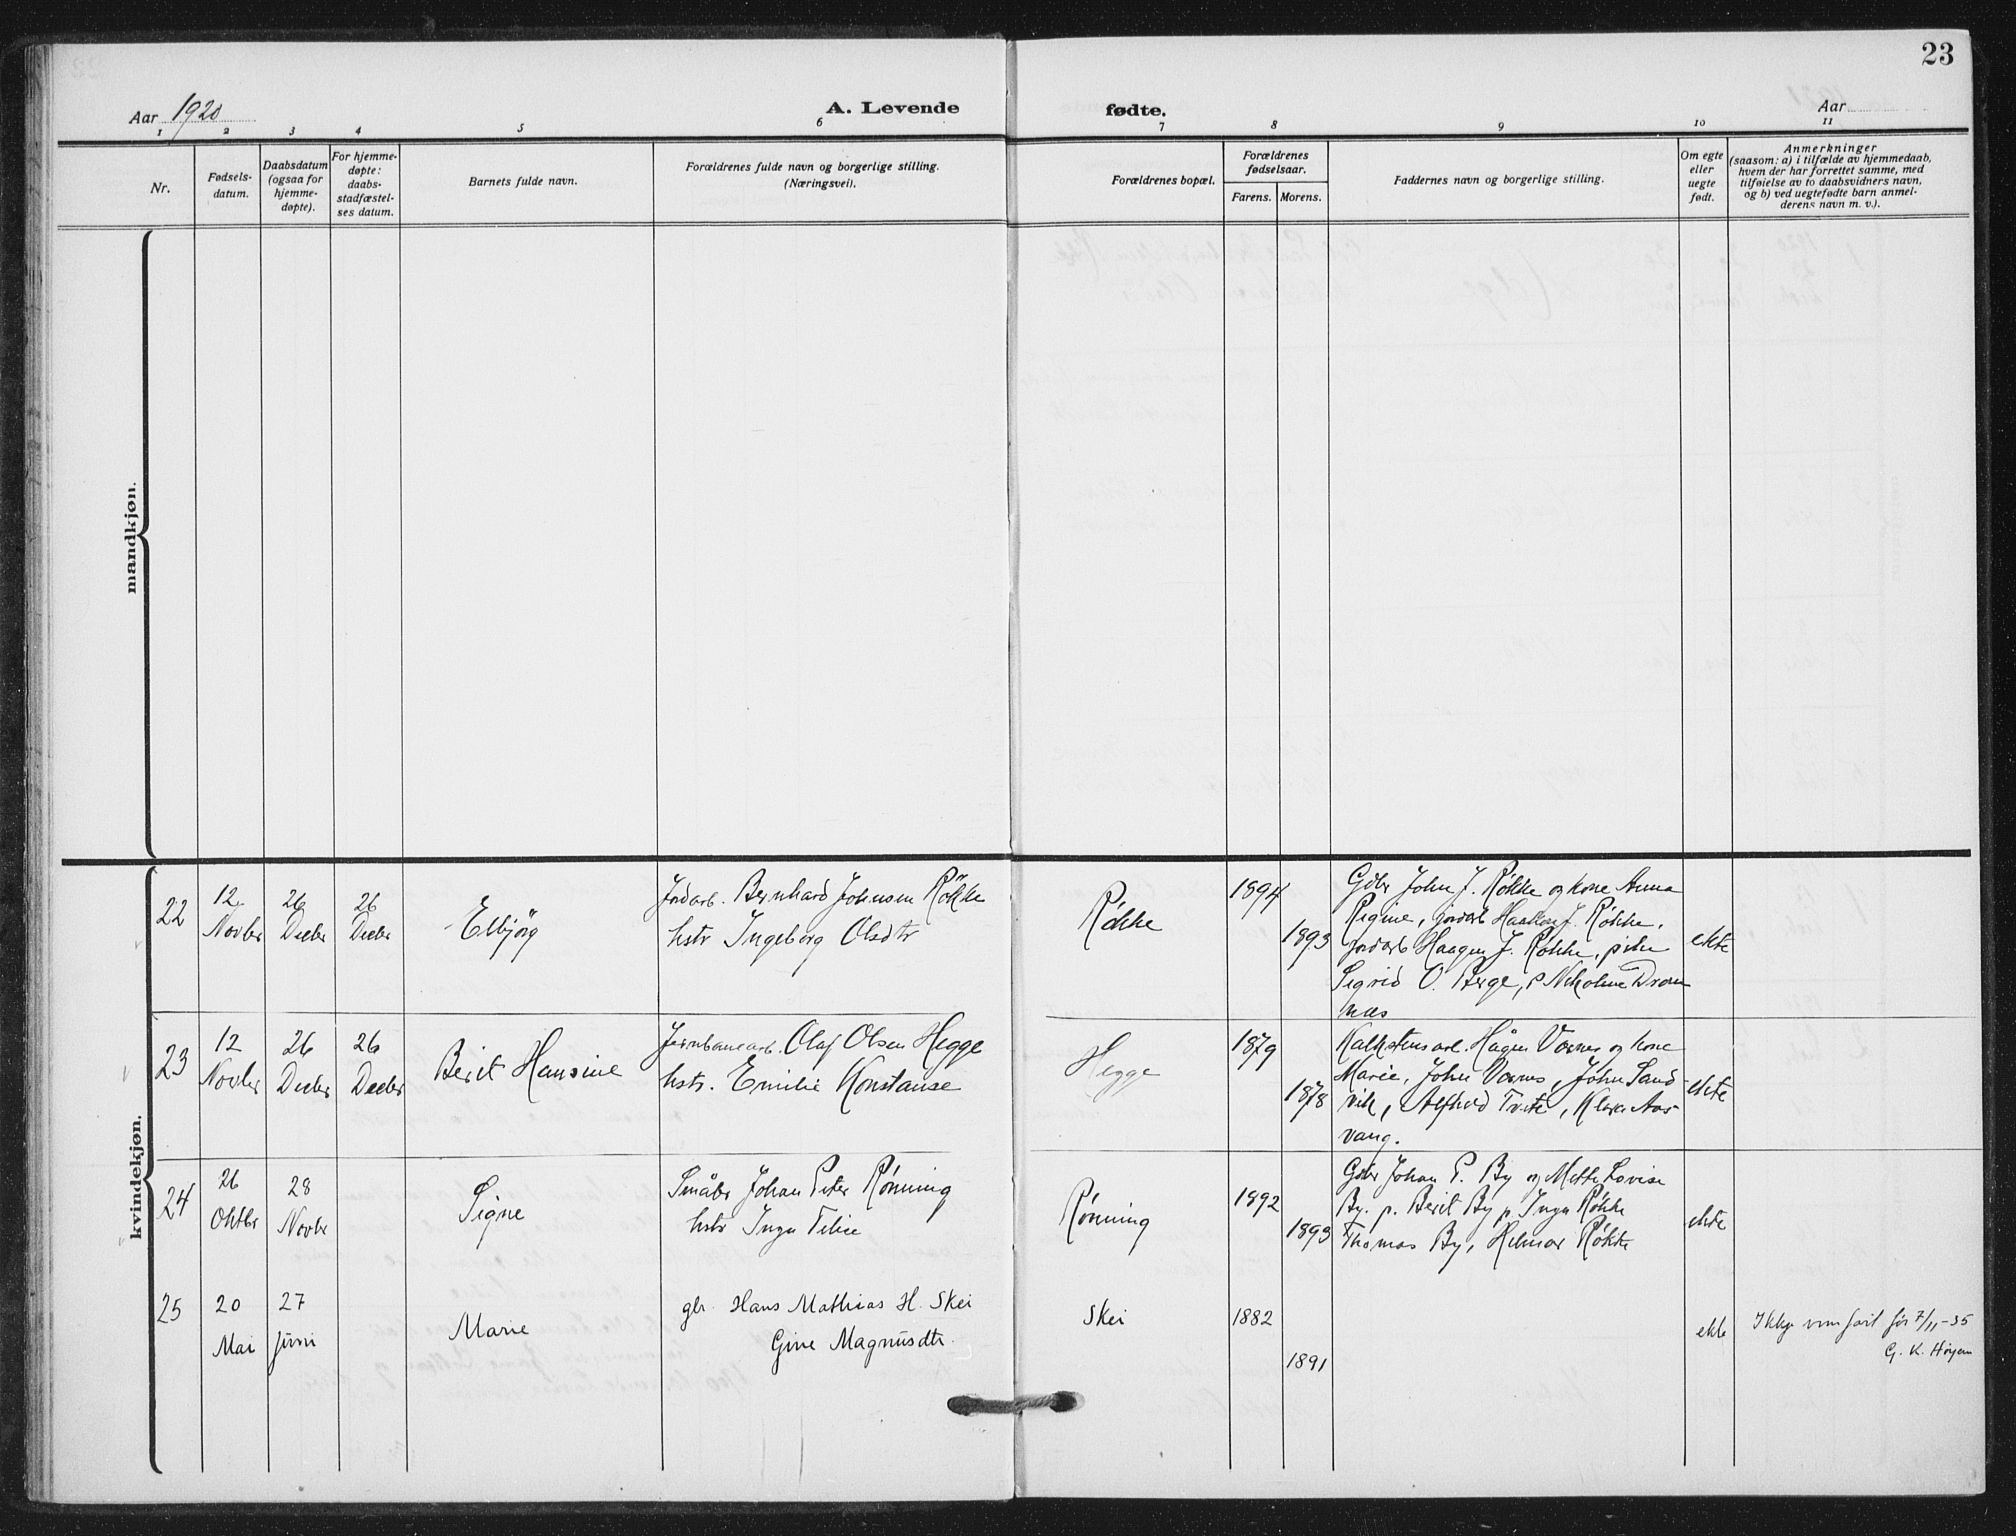 23
Aar 1920
A. Levende
fødte.
Aar
1 2 3 4 5 6 7 8 9 10 11
Nr.
Fødsels-
datum.
Daabsdatum
(ogsaa for
hjemme-
døpte).
For hjemme-
døpte:
daabs-
stadfæstel-
ses datum.
Barnets fulde navn.
Forældrenes fulde navn og borgerlige stilling.
(Næringsvei).
Forældrenes bopæl.
Forældrenes
fødselsaar.
Farens. Morens.
Faddernes navn og borgerlige stilling.
Om egte
eller
uegte
født.
Anmerkninger
(saasom: a) i tilfælde av hjemmedaab,
hvem der har forrettet samme, med
tilføielse av to daabsvidners navn,
og b) ved uegtefødte barn anmel-
derens navn m. v.).
mandkjøn.
kvindekjøn.
22
12
Novbr
26
Decbr
26
Decbr
Elbjörg
Jordarb. Bernhard Johnsen Røkke
hstr Ingeborg Olsdtr
Røkke
1894
1893
Gdbr John J. Røkke og kone Anna
Regine, jordarb Haakon J. Røkke,
jordarb Haagen J. Røkke, pike
Sigrid O. Berge, p Nikoline Dram
næs
ekte
23
12
Novbr
26
Decbr
26
Decbr
Berit Hansine
Jernbanearb. Olaf Olsen Hegge
hstr. Emilie Konstanse
Hegge
1879
1878
Kalkstensarb. HågenVærnes og kone
Marie, John Værnes, John Sand-
vik, Alfhild Trete, Klara Aas-
vang.
ekte
24
26
Oktbr
28
Novbr
Signe
Småbr Johan Peter Rønning
hstr Inga Tilie
Rønning
1892
1893
Gdbr Johan P. By og Mette Lovise
By. p. Berit By p. Inga Røkke
Thomas By, Helmar Røkke
ekte
25
20
Mai
27
juni
Marie
gbr. Hans Mathias H. Skei
Gine Magnusdtr.
Skei
1882
1891
ekte
Ikkje innført før 7/11-35
G. K. Høyem